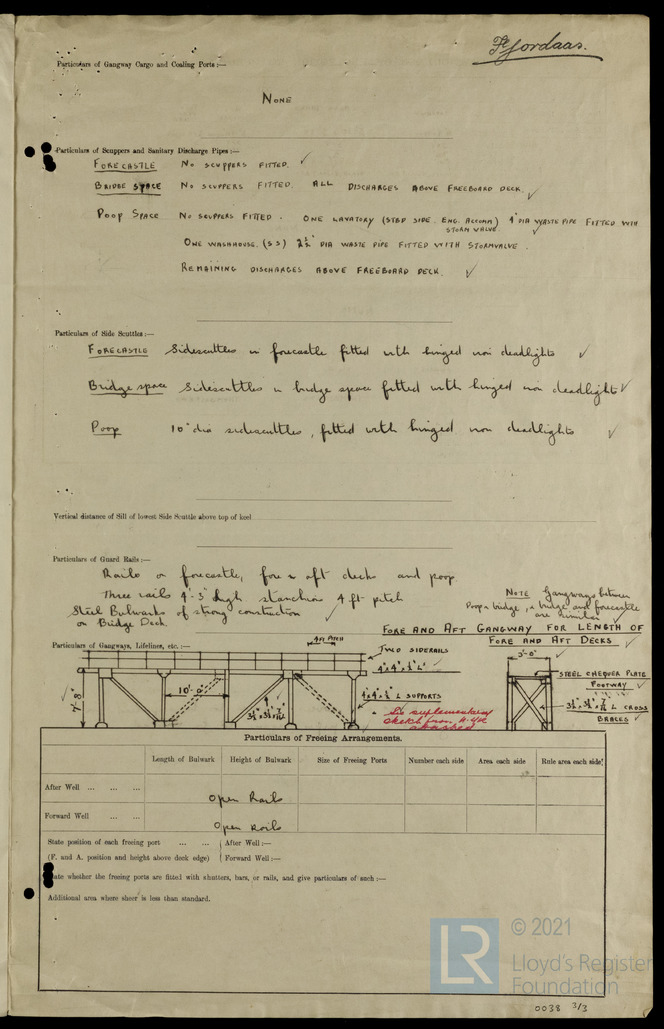 Fjordaas.
Particulars of Gangway Cargo and Coaling Ports :—
NONE
Particulars of Scuppers and Sanitary Discharge Pipes :—
FORECASTLE NO SCUPPERS FITTED. ✓
BRIDGE SPACE NO SCUPPERS FITTED. ALL DISCHARGES ABOVE FREEBOARD DECK. ✓
POOP SPACE NO SCUPPERS FITTED. ONE LAVATORY (STBD SIDE. ENG. ACCOMM) 4" DIA WASTE PIPE FITTED WITH
STORM VALVE. ✓
ONE WASHHOUSE. (S S) DIA WASTE PIPE FITTED WITH STORMVALVE.
REMAINING DISCHARGES ABOVE FREEBOARD DECK. ✓
Particulars of Side Scuttles :—
FORECASTLE Sidescuttles in forecastle fitted with hinged iron deadlights ✓
Bridge space Sidescuttles in bridge space fitted with hinged iron deadlights ✓
Poop 10" dia sidescuttles, fitted with hinged iron deadlights ✓
Vertical distance of Sill of lowest Side Scuttle above top of keel
Particulars of Guard Rails :—
Rails on forecastle, fore & aft decks and poop.
Three rails 4'-3" high stanchions 4 ft pitch
Steel Bulwarks of strong construction ✓
on Bridge Deck.
NOTE Gangways between
Poop & bridge, & bridge and forecastle
are similar ✓
FORE AND AFT GANGWAY FOR LENGTH OF
FORE AND AFT DECKS ✓
Particulars of Gangways, Lifelines, etc. :—
4 FT PITCH
TWO SIDERAILS
4" × 4" × ½" L
4" × 4" × ½" L SUPPORTS
10'-0"
7'-8"
3'-0"
STEEL CHEQUER PLATE
FOOTWAY
L CROSS
BRACES
See suplementary
sketch from
attached
Particulars of Freeing Arrangements.
Length of Bulwark Height of Bulwark Size of Freeing Ports Number each side Area each side Rule area each side
After Well ... ... ... Open Rails
Forward Well ... ... Open Rails
State position of each freeing port ... ... After Well :—
(F. and A. position and height above deck edge) Forward Well :—
State whether the freeing ports are fitted with shutters, bars, or rails, and give particulars of such :—
Additional area where sheer is less than standard.
LR
© 2021
Lloyd's Register
Foundation
0038 3/3